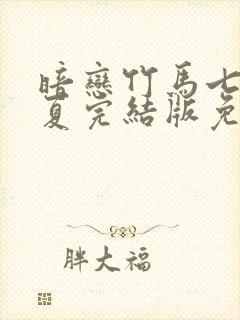 暗戀竹馬七
夏完結版免
胖大福